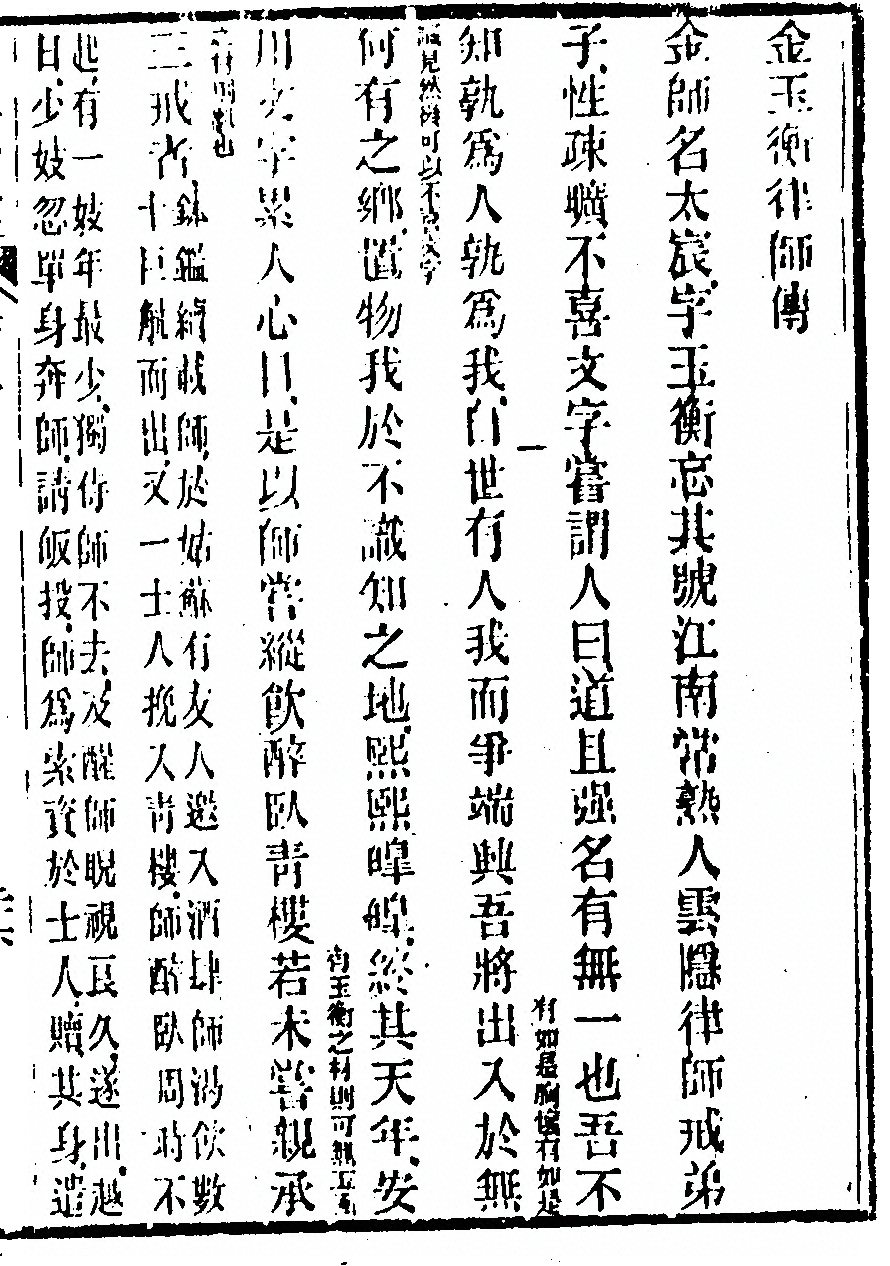 金玉衡律師傳
金師名太宸字玉衡忘其號江南常熟人雲隱律師戒弟
子性疎曠不喜文字嘗謂人曰道且强名有無一也吾不
有如是胸懷有如是
知孰爲人孰爲我自世有人我而爭端興吾將出入於無
識見然後可以不喜文字
何有之鄉置物我於不識知之地熙熙皥皥終其天年安
有玉衡之材則可無玉衡
用文字累人心目是以師嘗縱飲醉臥青樓若未嘗親承
之材則亂也
三戒者
鉢鑑續載師於姑蘇有友人邀入酒肆師渴飲數
十巨觥而出又一士人挽入青樓師醉臥周時不
起有一妓年最少獨侍師不去及醒師睨視良久遂出越
日少妓忽單身奔師請皈投師爲索資於士人贖其身遣